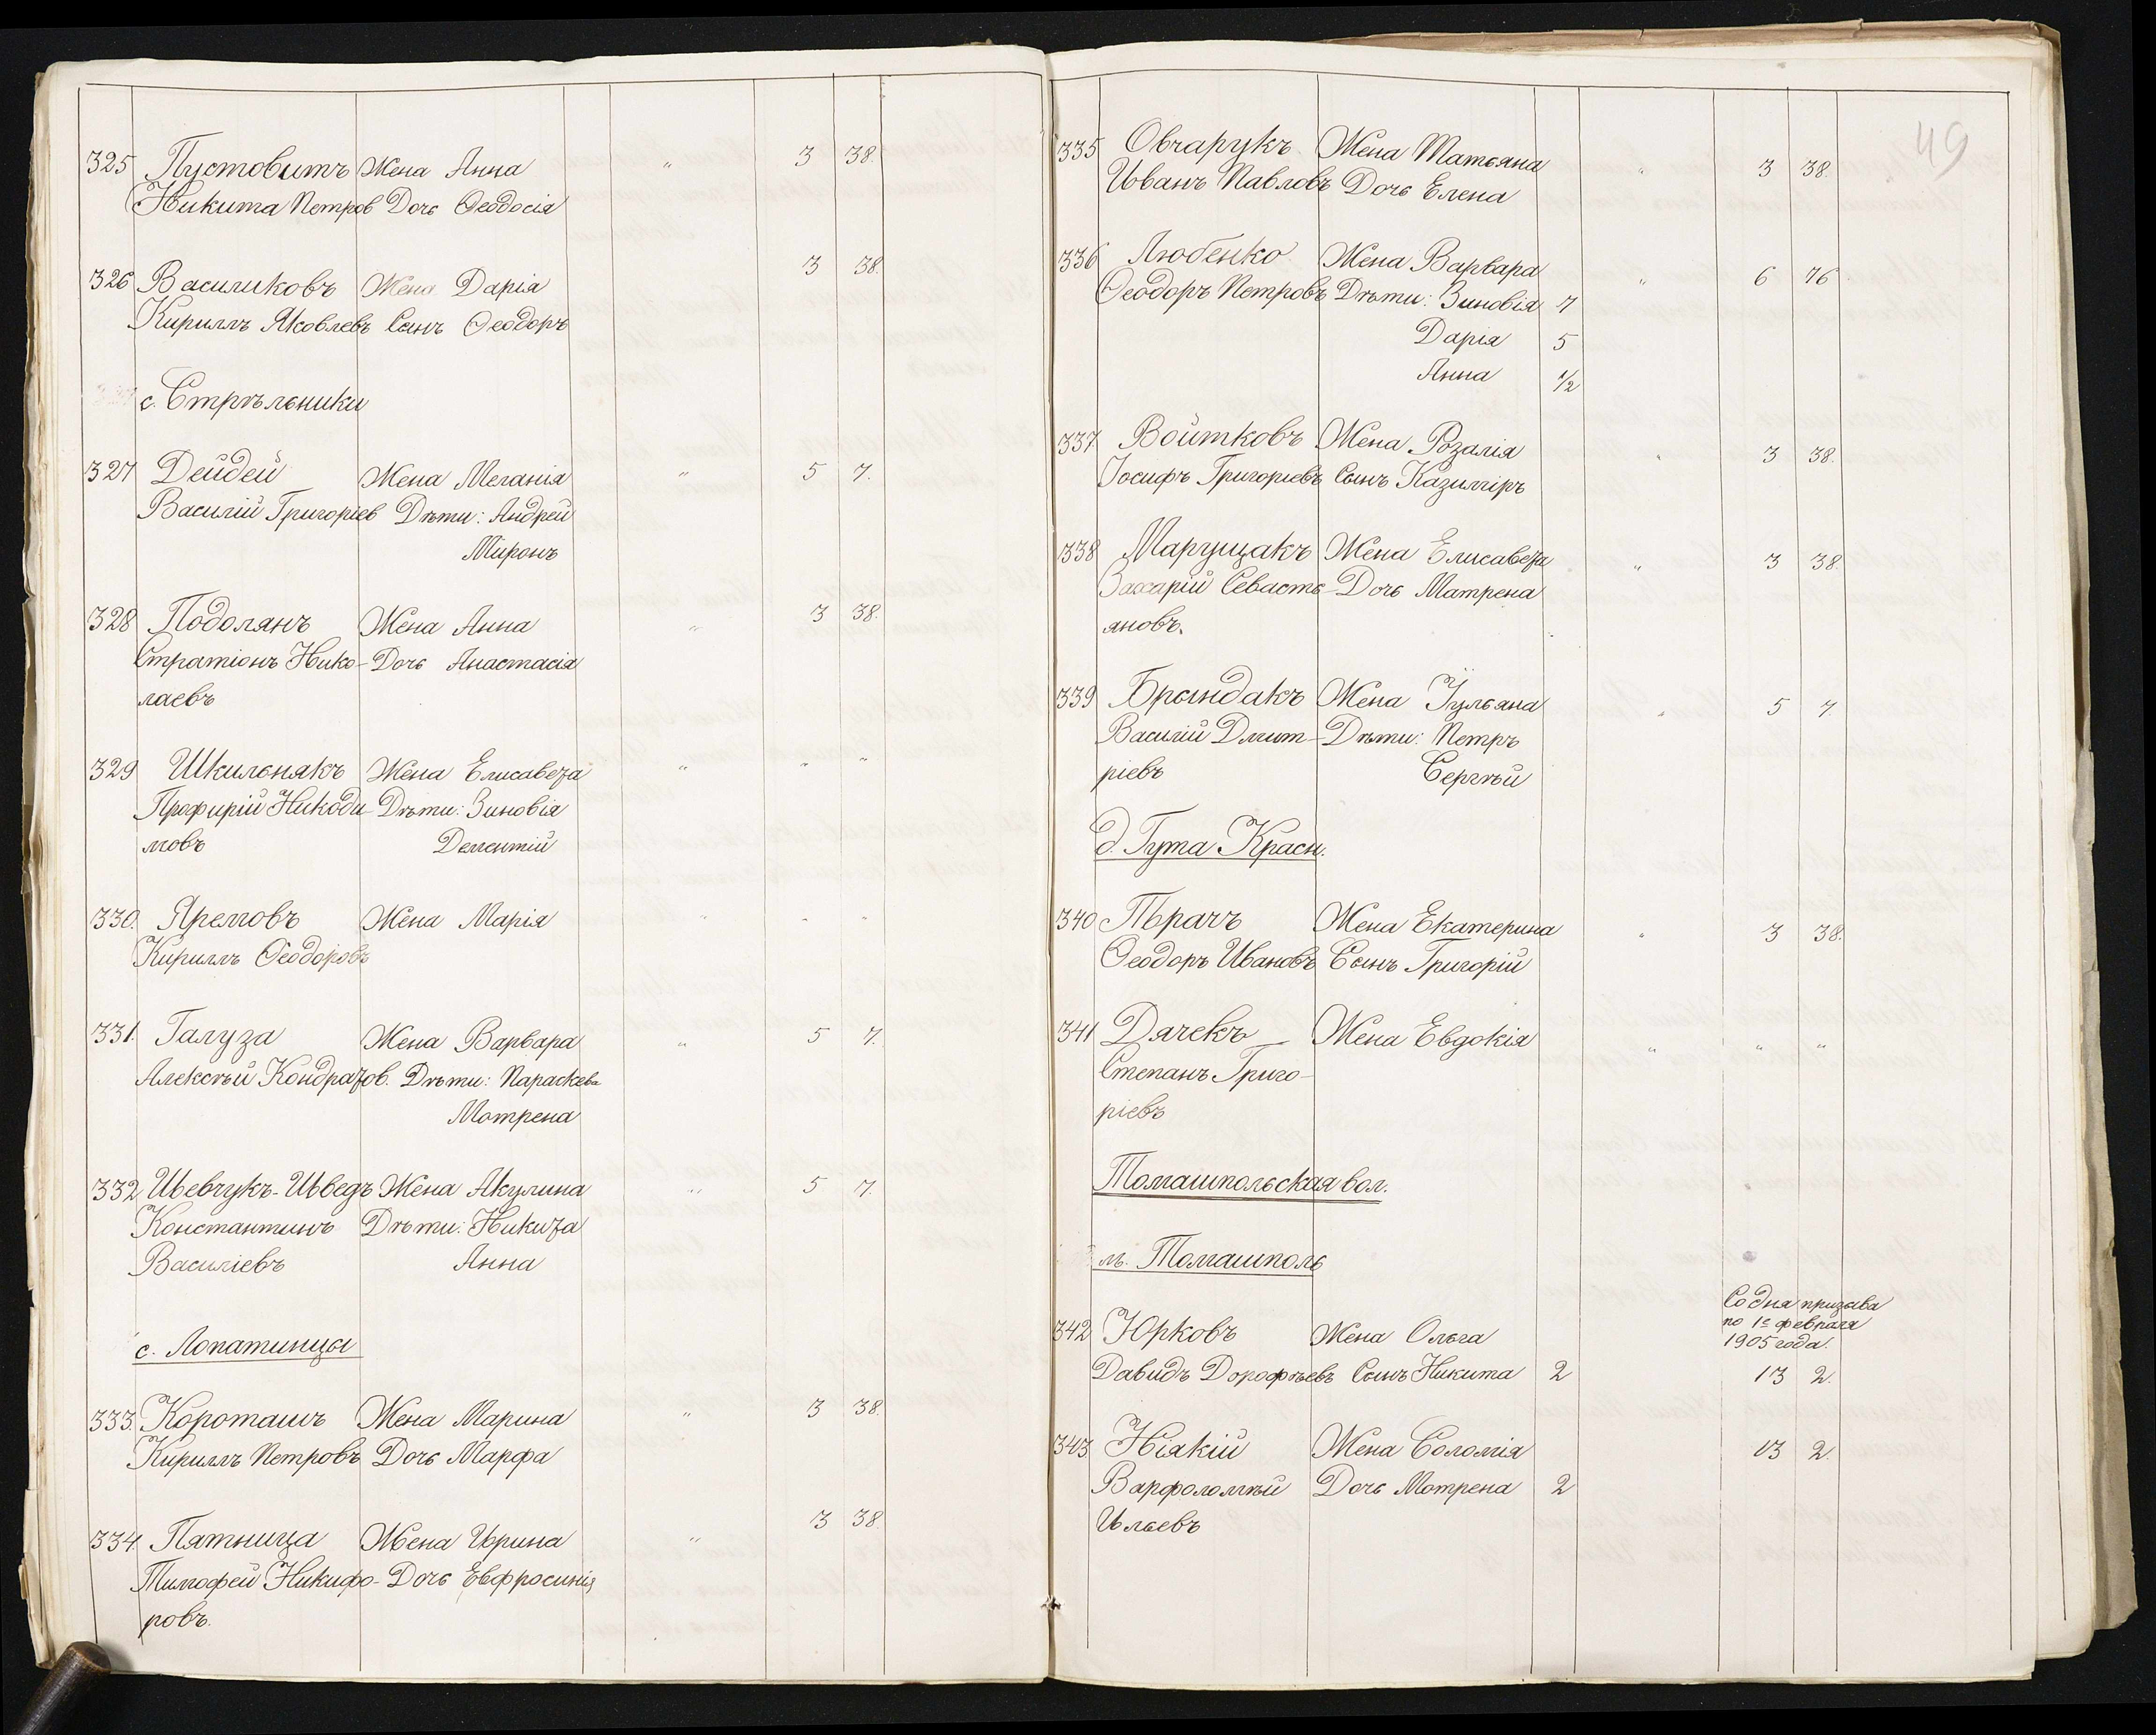 325 Пустовитъ Жена Анна " 3 38.
Никита Петров Дочь Ѳеодосія
326 Василиковъ Жена Дарія 3 38.
Кириллъ Яковлевъ Сынъ Ѳеодоръ
с. Стрѣльники
327 Дейдей Жена Меланія " 5 7.
Василій Григоріев Дѣти: Андрей
Миронъ
328 Подолянъ Жена Анна " 3 38.
Стратіонъ Нико- Дочь Анастасія
лаевъ
329 Шкильнякъ Жена Елисавета " " "
Профирій Никоди- Дѣти: Зиновія
мовъ Дементій
330. Яремовъ Жена Марія " " "
Кириллъ Ѳеодоровъ
331. Галуза Жена Варвара " 5 7.
Алексѣй Кондратов. Дѣти: Параскева
Мотрена
332 Шевчукъ-Шведъ Жена Акулина " 5 7.
Константинъ Дѣти: Никита
Василіевъ Анна
с. Лопатинцы
333. Короташъ Жена Марина " 3 38.
Кириллъ Петровъ Дочь Марфа
334. Пятница Жена Ирина " 3 38.
Тимофей Никифо- Дочь Евфросинія
ровъ.
49
335 Овчарукъ Жена Татьяна " 3 38.
Иванъ Павловъ Дочь Елена
336 Любенко Жена Варвара " 6 76
Ѳеодоръ Петровъ Дѣти: Зиновія 7
Дарія 5
Анна 1/2
337 Войтковъ Жена Розалія " 3 38.
Іосифъ Григоріевъ Сынъ Казиміръ
338 Марущакъ Жена Елисавета " 3 38.
Захарій Севасть- Дочь Матрена
яновъ.
339 Брындакъ Жена Іульяна " 5 7.
Василій Дмит- Дѣти: Петръ
ріевъ Сергѣй
д. Гута Красн.
340 Жена Екатерина " 3 38.
Ѳеодоръ Ивановъ Сынъ Григорій
341 Дячекъ Жена Евдокія " " "
Степанъ Григо-
ріевъ
Томашпольская вол.
м. Томашполь
Со дня призыва
по 1е февраля
1905 года.
342 Юрковъ Жена Ольга
Давидъ Дорофѣевъ Сынъ Никита 2 13 2.
343 Ніякій Жена Соломія 13 2.
Варфоломѣй Дочь Мотрена 2
Ильевъ